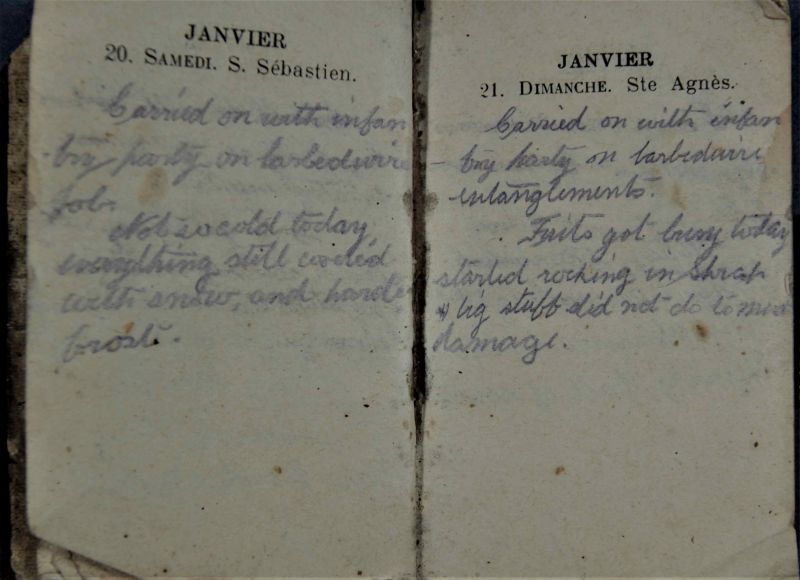 JANVIER
20. SAMEDI. S. Sébastien.
Carried on with infan
-try party on barbedwire
job.
Not so cold today,
everything still cooled
with snow, and hard
frost.
JANVIER
21. DIMANCHE. Ste Agnès.
Carried on with infan
-try party on barbedwire
entanglements.
Frits got busy today
started rocking in Shrap
& big stuff did not do to
damage.